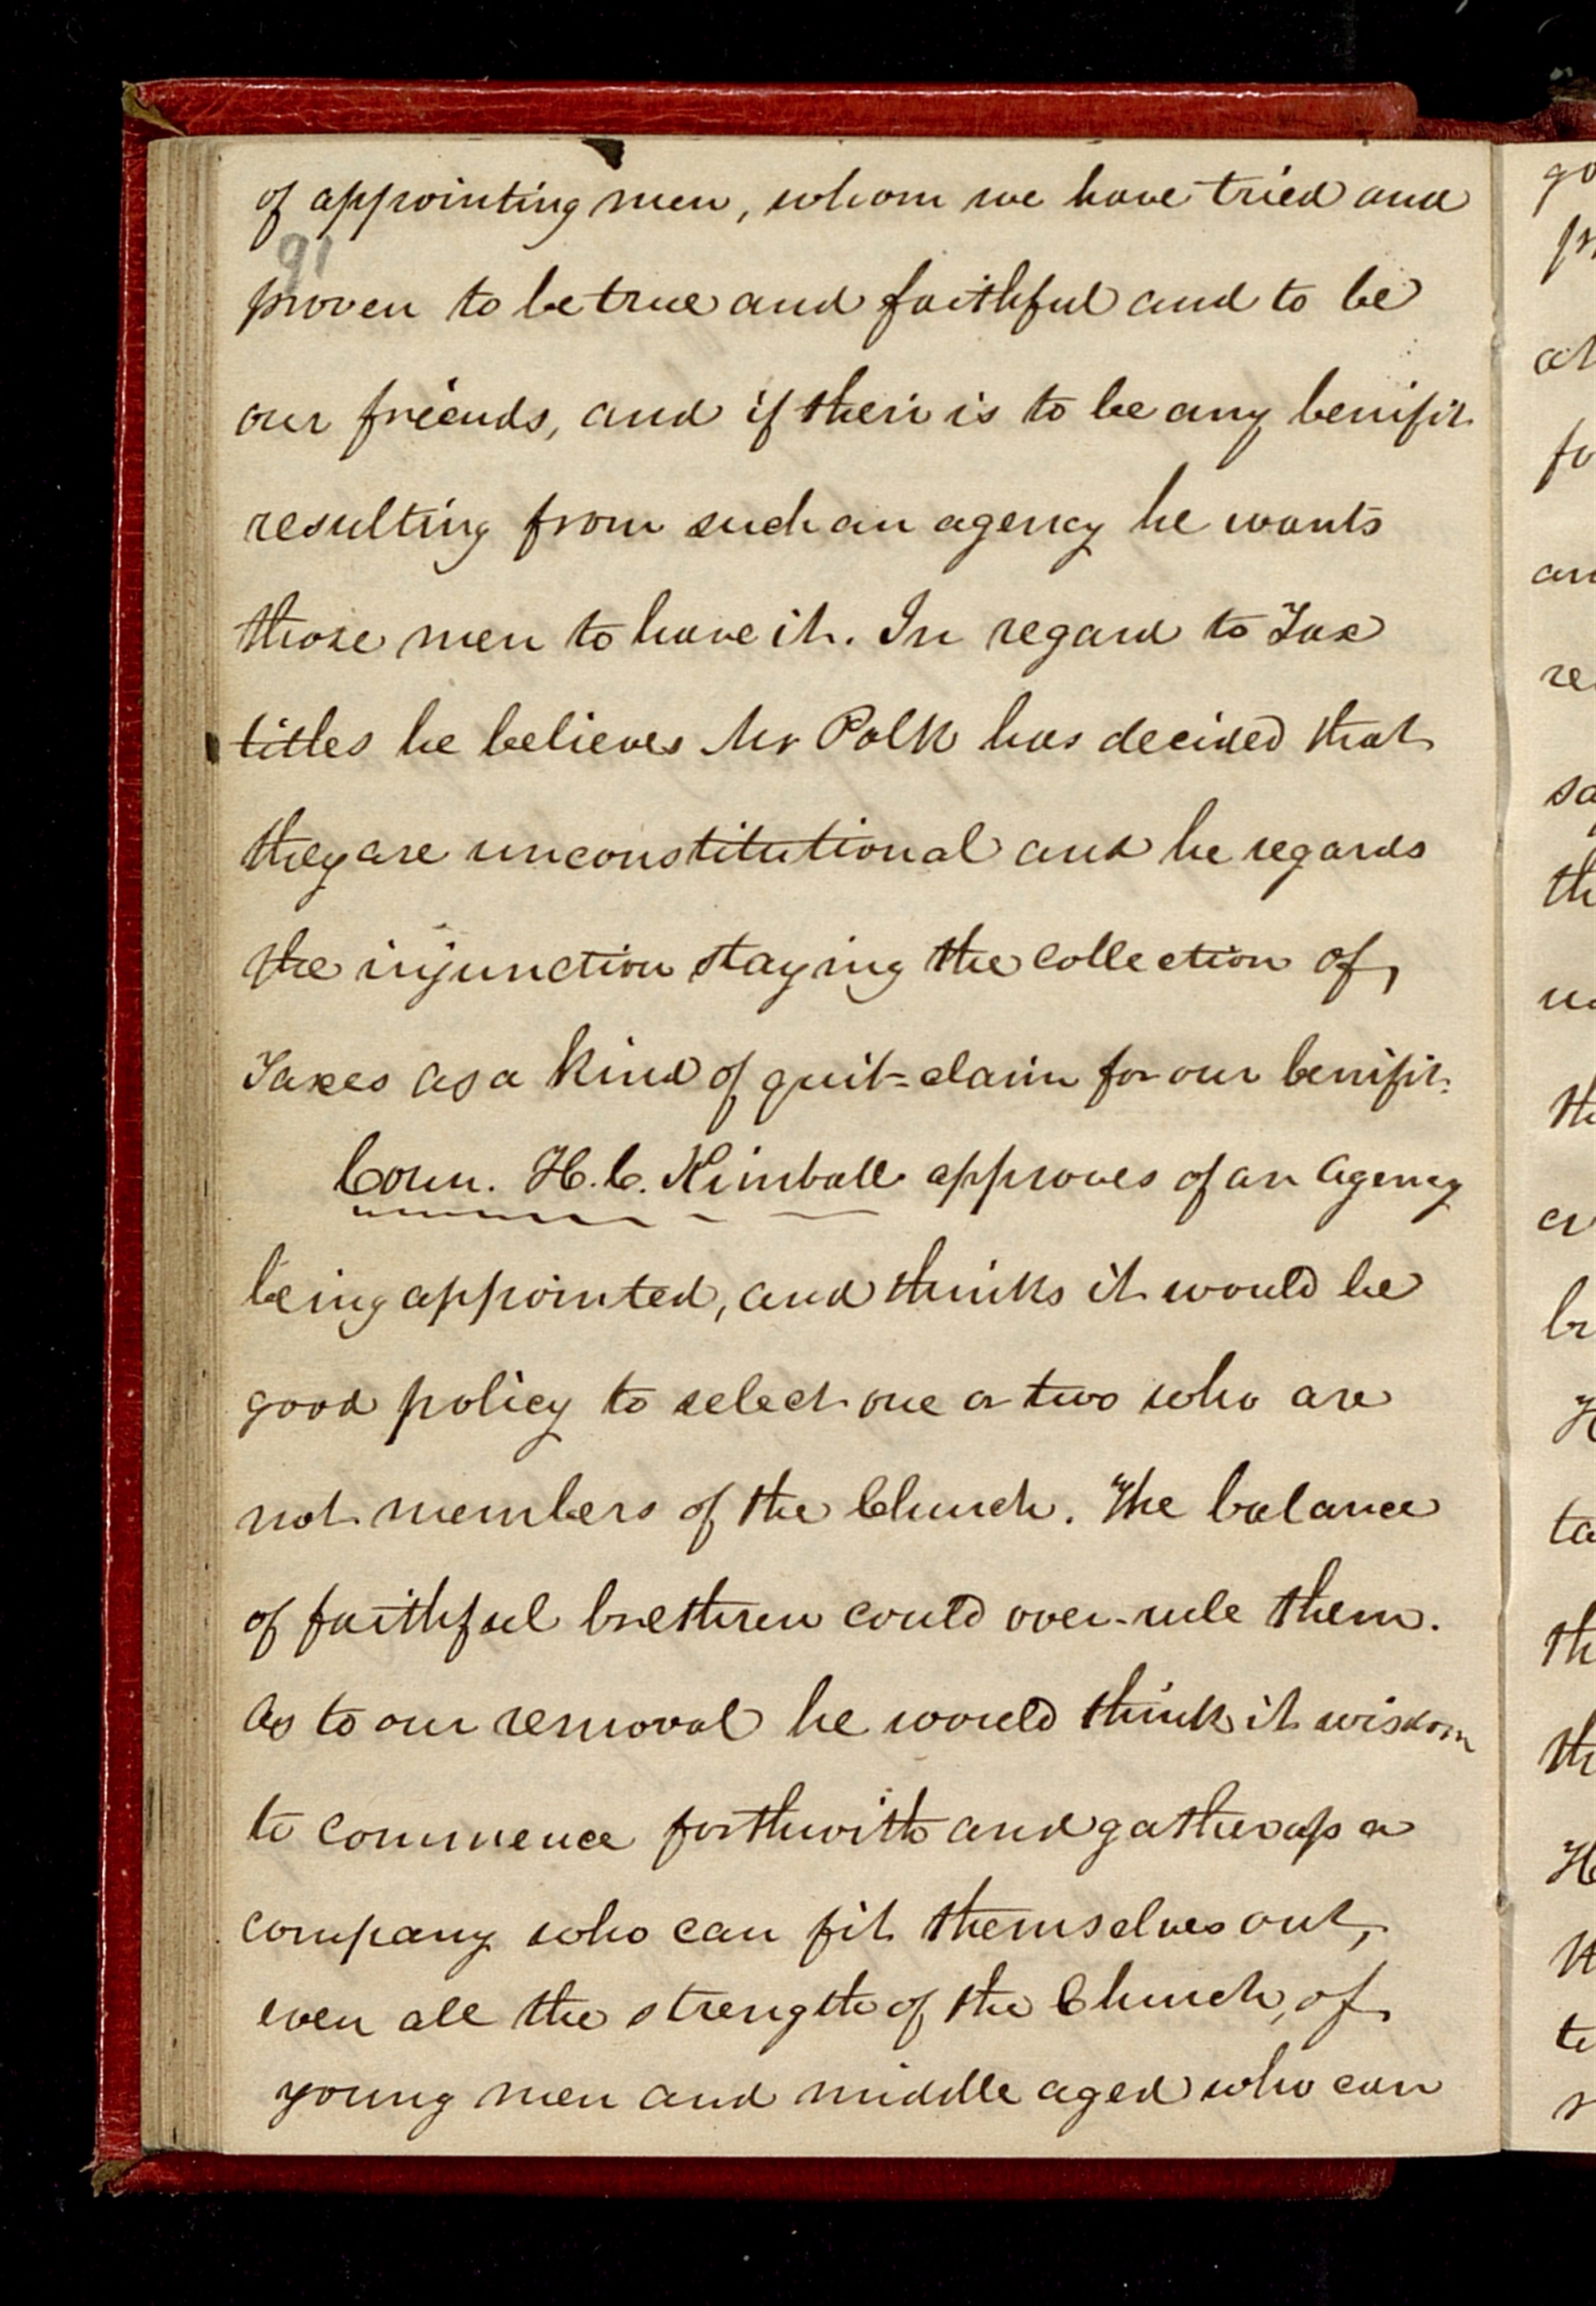 of appointing men, whom we have tried and
91
proven to be true and faithful and to be
our friends, and if their is to be any benifit
resulting from such an agency he wants
those men to have it. In regard to Tax
titles he believes Mr Polk has decided that
they are unconstitutional and he regards
the injunction staying the collection of,
Taxes as a kind of quit=claim for our benifit.
Coun. H. C. Kimball approves of an agency
being appointed, and thinks it would be
good policy to select one or two who are
not members of the Church. The balance
of faithful brethren could over-rule them.
As to our removal he would think it wisdom
to commence forthwith and gather up a
company who can fit themselves out,
even all the strength of the Church, of
young men and middle aged who can